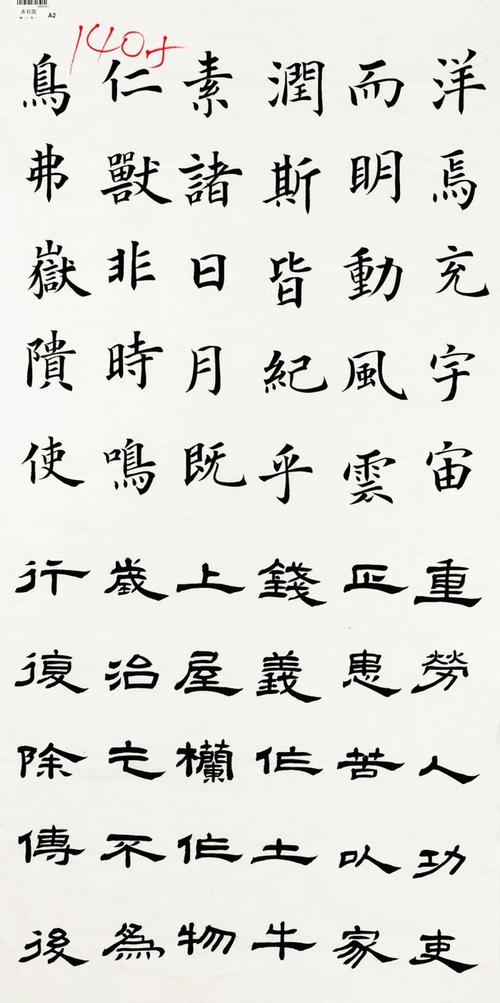 A2
140
洋焉充宇宙
而明動風雲
潤斯皆紀乎
素諸日月既
仁獸非時鳴
鳥弗嶽隤使
重勞人功吏
正患苦以家
錢義作土牛
上屋欄作物
歲治之不為
行復除傳後